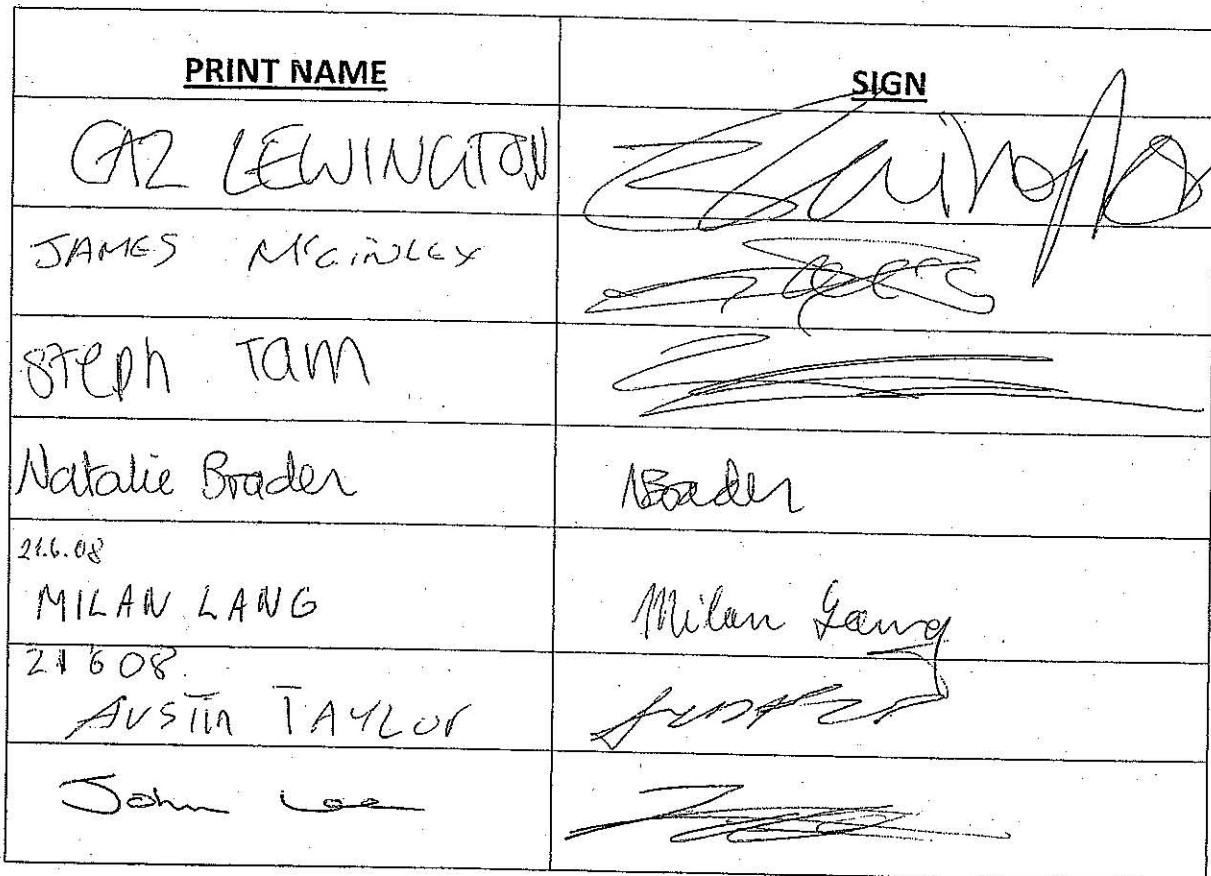 PRINT NAME SIGN
GAZ LEWINGTON
JAMES McGINLEY
STEPH TAM
Natalie Brader NBrader
21.6.08
MILAN LANG Milan Lang
21 6 08
AUSTIN TAYLOR
John Lee